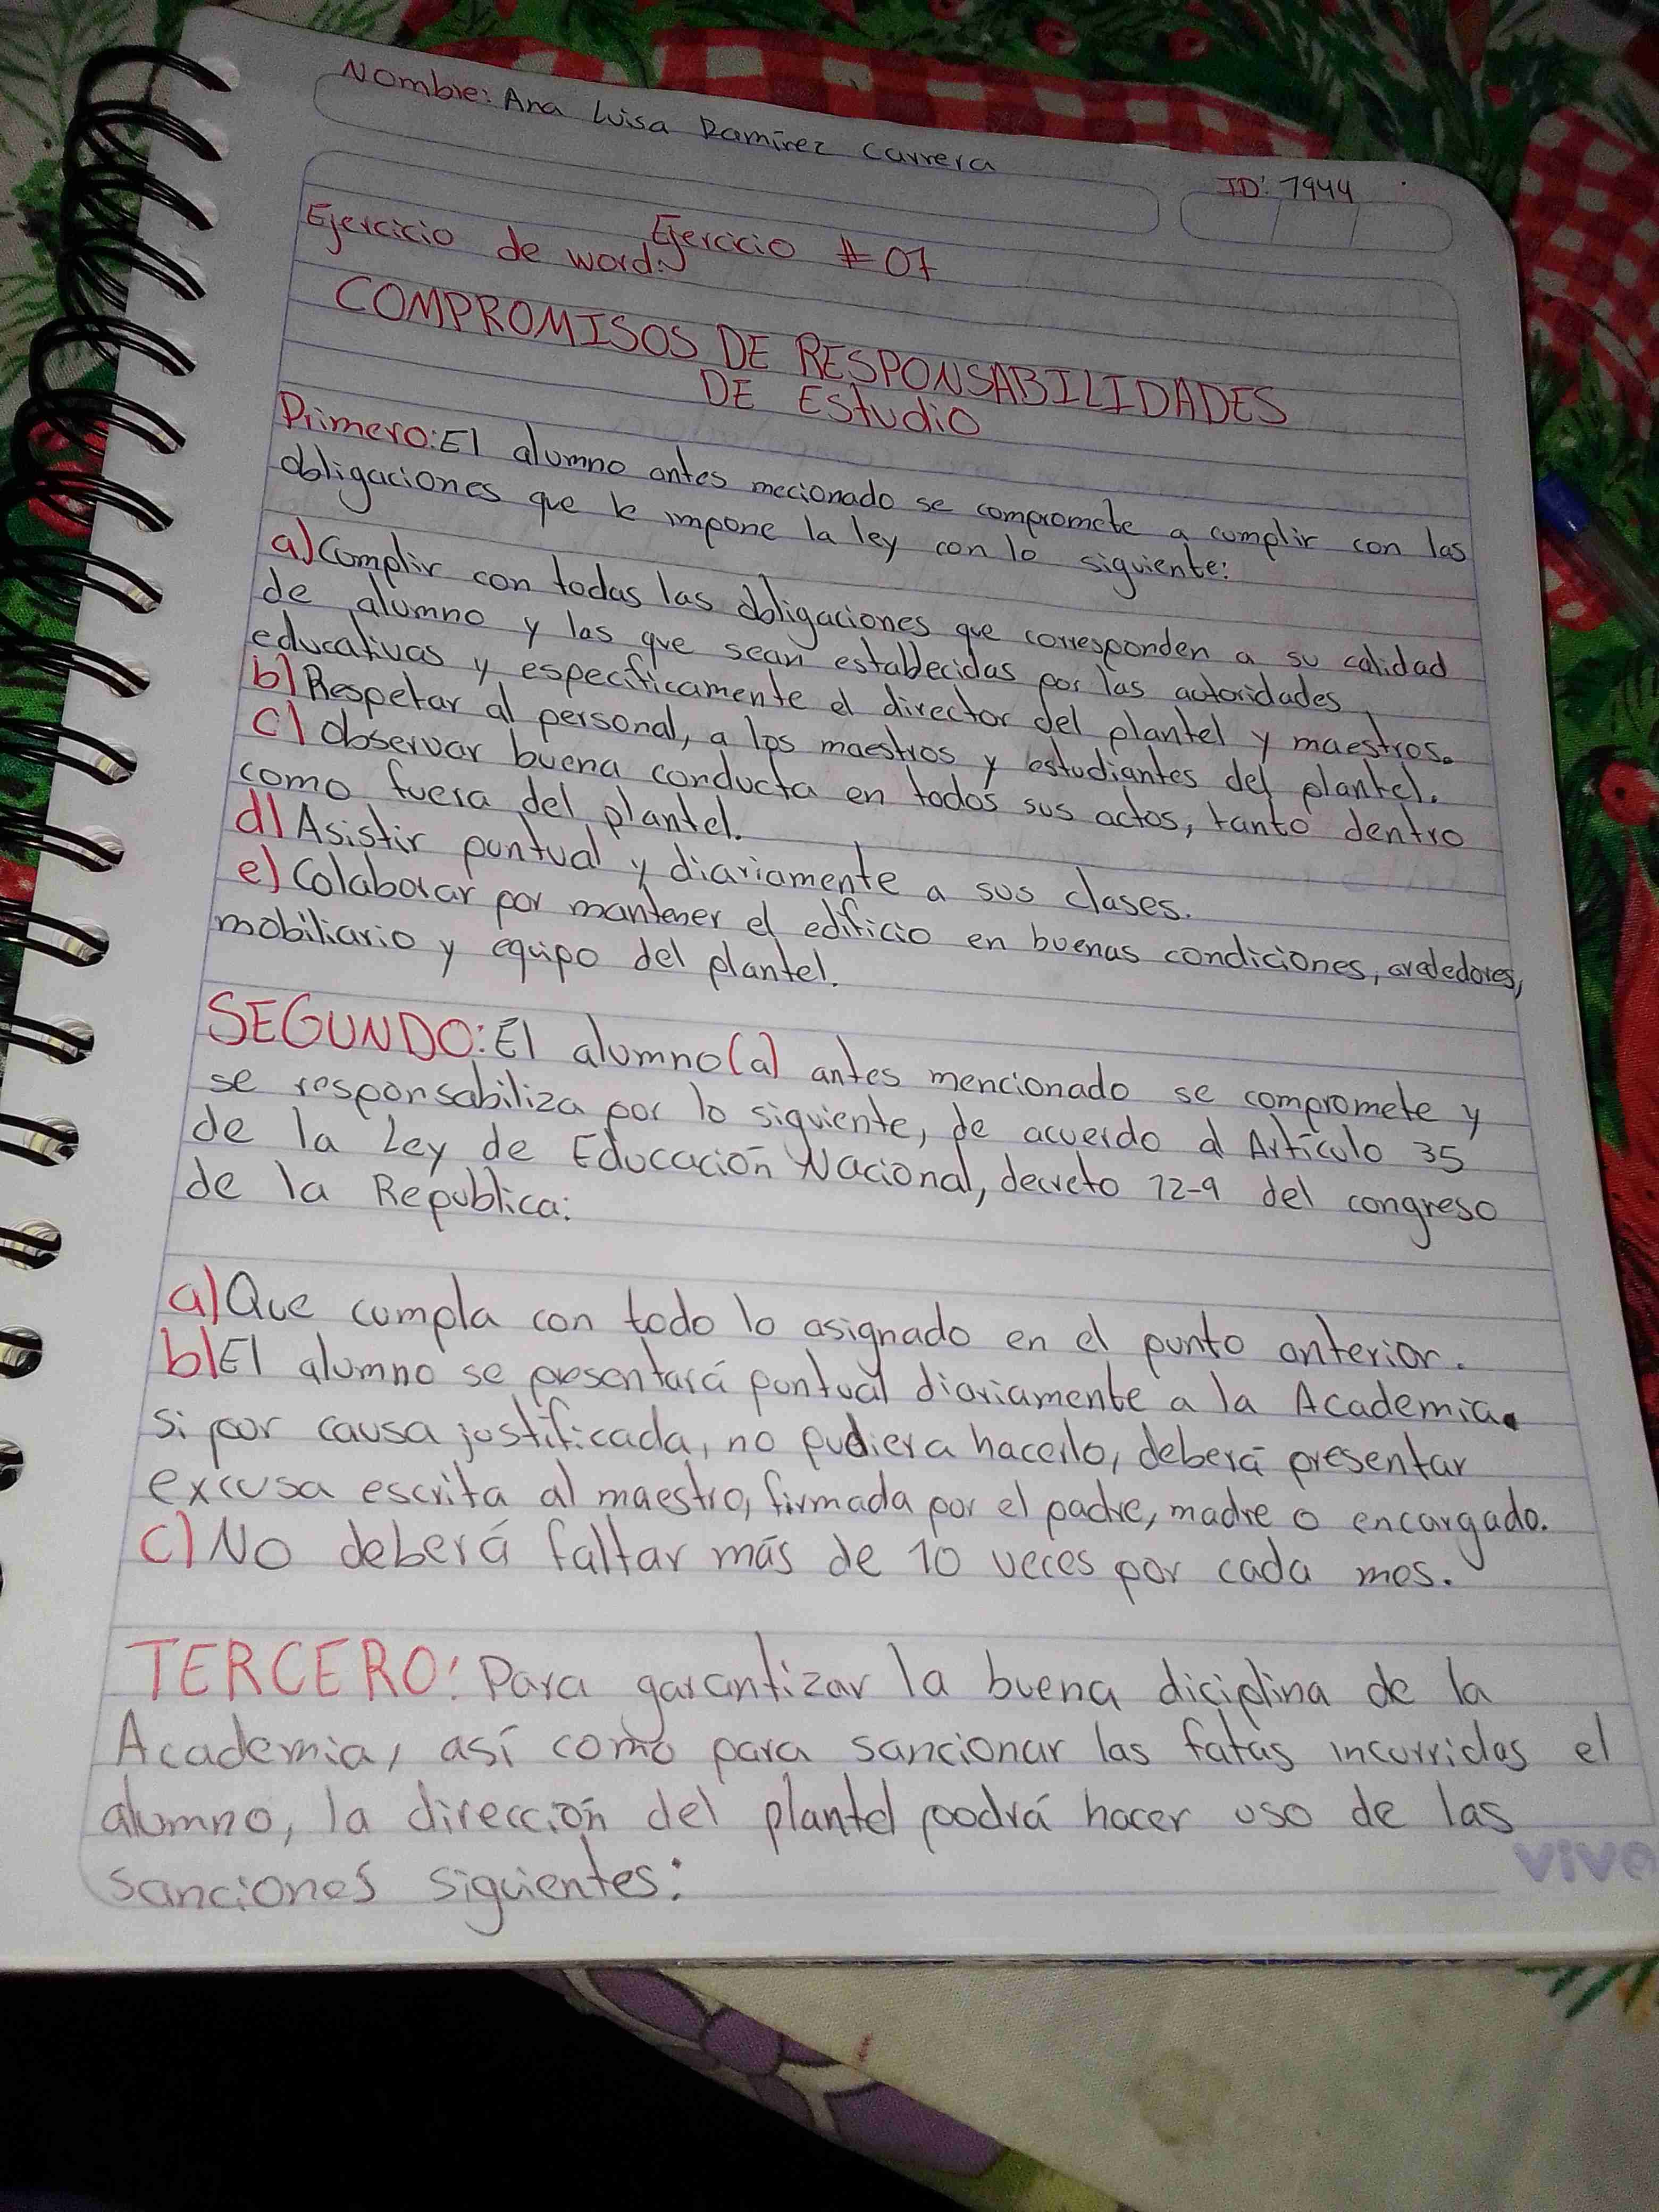 Nombre: Ana Luisa Ramírez Carrera
ID: 7944
Ejercicio de word: Ejercicio # 07
COMPROMISOS DE RESPONSABILIDADES
DE EStudiO
Primero: El alumno antes mecionado se compromete a cumplir con las
obligaciones que le impone la ley con lo siguiente:
a) Cumplir con todas las obligaciones que corresponden a su calidad
de alumno y las que sean establecidas por las autoridades
educativas y específicamente el director del plantel y maestros.
b) Respetar al personal, a los maestros y estudiantes del plantel.
c) Observar buena conducta en todos sus actos, tanto dentro
como fuera del plantel.
d) Asistir puntual y diariamente a sus clases.
e) Colaborar por mantener el edificio en buenas condiciones, arededores,
mobiliario y equipo del plantel.
SEGUNDO: El alumno(a) antes mencionado se compromete y
se responsabiliza por lo siguiente, de acuerdo al Artículo 35
de la Ley de Educación Nacional, decreto 12-9 del congreso
de la Republica:
a) Que cumpla con todo lo asignado en el punto anterior.
b) El alumno se presentará puntual diariamente a la Academia.
si por causa justificada, no pudiera hacerlo, deberá presentar
excusa escrita al maestro, firmada por el padre, madre o encargado.
c) No deberá faltar más de 10 veces por cada mes.
TERCERO: Para garantizar la buena diciplina de la
Academia, así como para sancionar las fatas incurridas el
alumno, la dirección del plantel podrá hacer uso de las
sanciones siguientes:
vivo